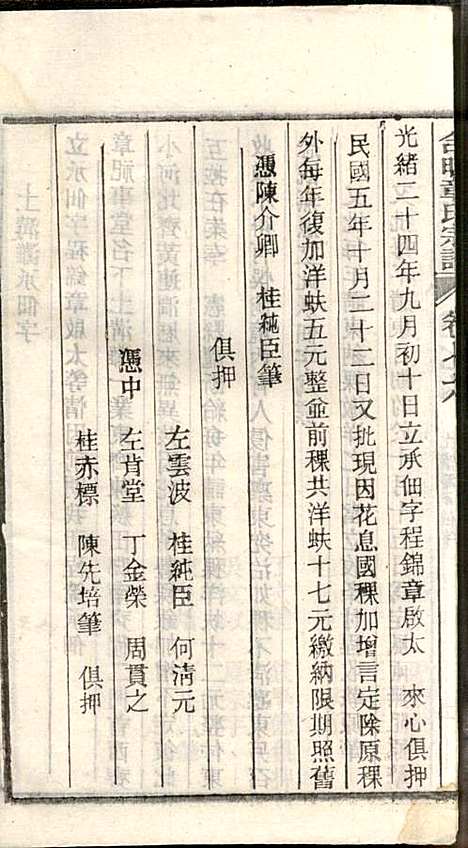 合明章氏宗譜 卷之八
光緒二十四年九月初十日立承佃字程錦章啟太 來心俱押
民國五年十月二十二日又批現因花息國稞加增言定除原稞
外每年復加洋蚨五元整並前稞共洋蚨十七元繳納限期照舊
憑陳介卿 桂純臣筆
俱押
左雲波 桂純臣 何清元
憑中 左肯堂 丁金榮 周貫之
桂赤標 陳先培筆 俱押